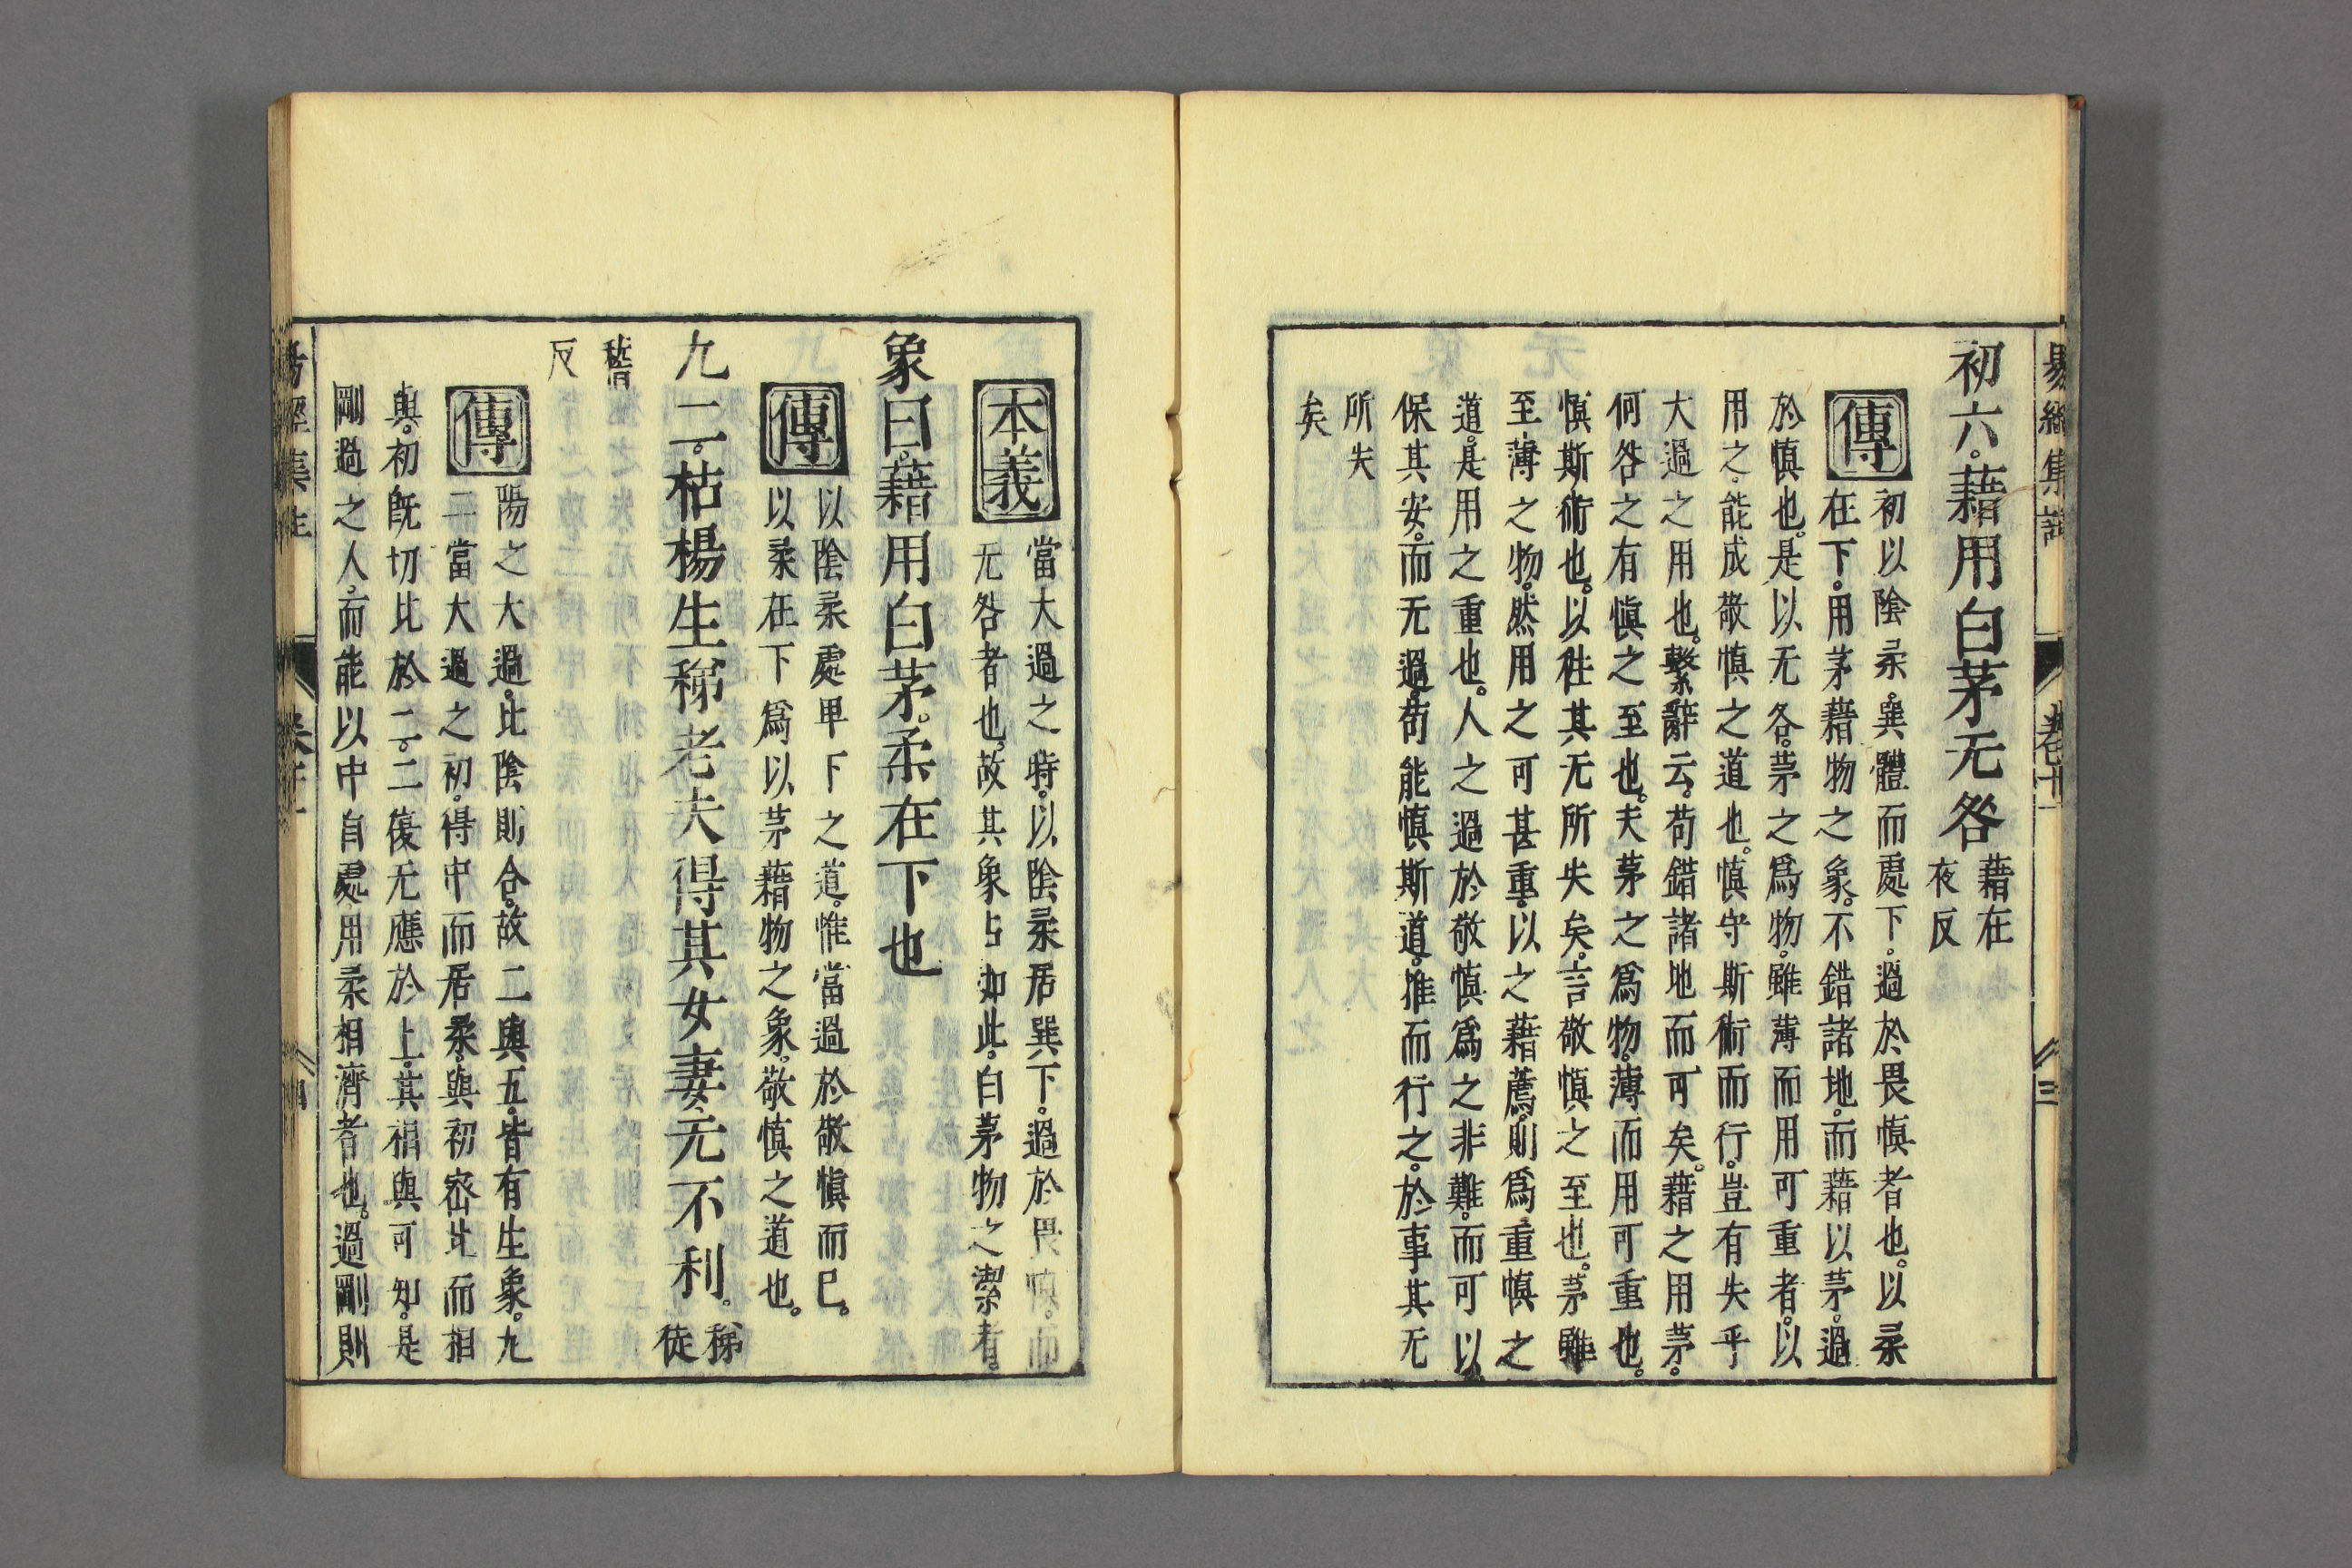 易經集註 卷十一 三
初六。藉用白茅无咎 藉在
夜反
傳 初以陰柔巽體而處下。過於畏慎者也。以柔
在下。用茅藉物之象。不錯諸地。而藉以茅。過
於慎也。是以无咎。茅之爲物。雖薄而用可重者。以
用之能成敬慎之道也。慎守斯術而行。豈有失乎
大過之用也。繫辭云。苟錯諸地而可矣。藉之用茅。
何咎之有慎之至也。夫茅之爲物。薄而用可重也。
慎斯術也。以往其无所失矣。言敬慎之至也。茅雖
至薄之物。然用之可甚重。以之藉薦。則爲重慎之
道。是用之重也。人之過於敬慎爲之非難。而可以
保其安。而无過。苟能慎斯道。推而行之。於事其无
所失
矣
本義 當大過之時。以陰柔居巽下。過於畏慎。而
无咎者也。故其象占如此。白茅物之潔者。
象曰。藉用白茅。柔在下也
傳 以陰柔處卑下之道。惟當過於敬慎而已。
以柔在下爲以茅藉物之象。敬慎之道也。
九二。枯楊生稊老夫得其女妻无不利。 稊
徒
稽
反
傳 陽之大過。比陰則合。故二與五。皆有生象。九
二當大過之初。得中而居柔。與初密比而相
與。初旣切比於二。二復无應於上。其相與可知。是
剛過之人。而能以中自處用柔相濟者也。過剛則
易經集註 卷十一 四